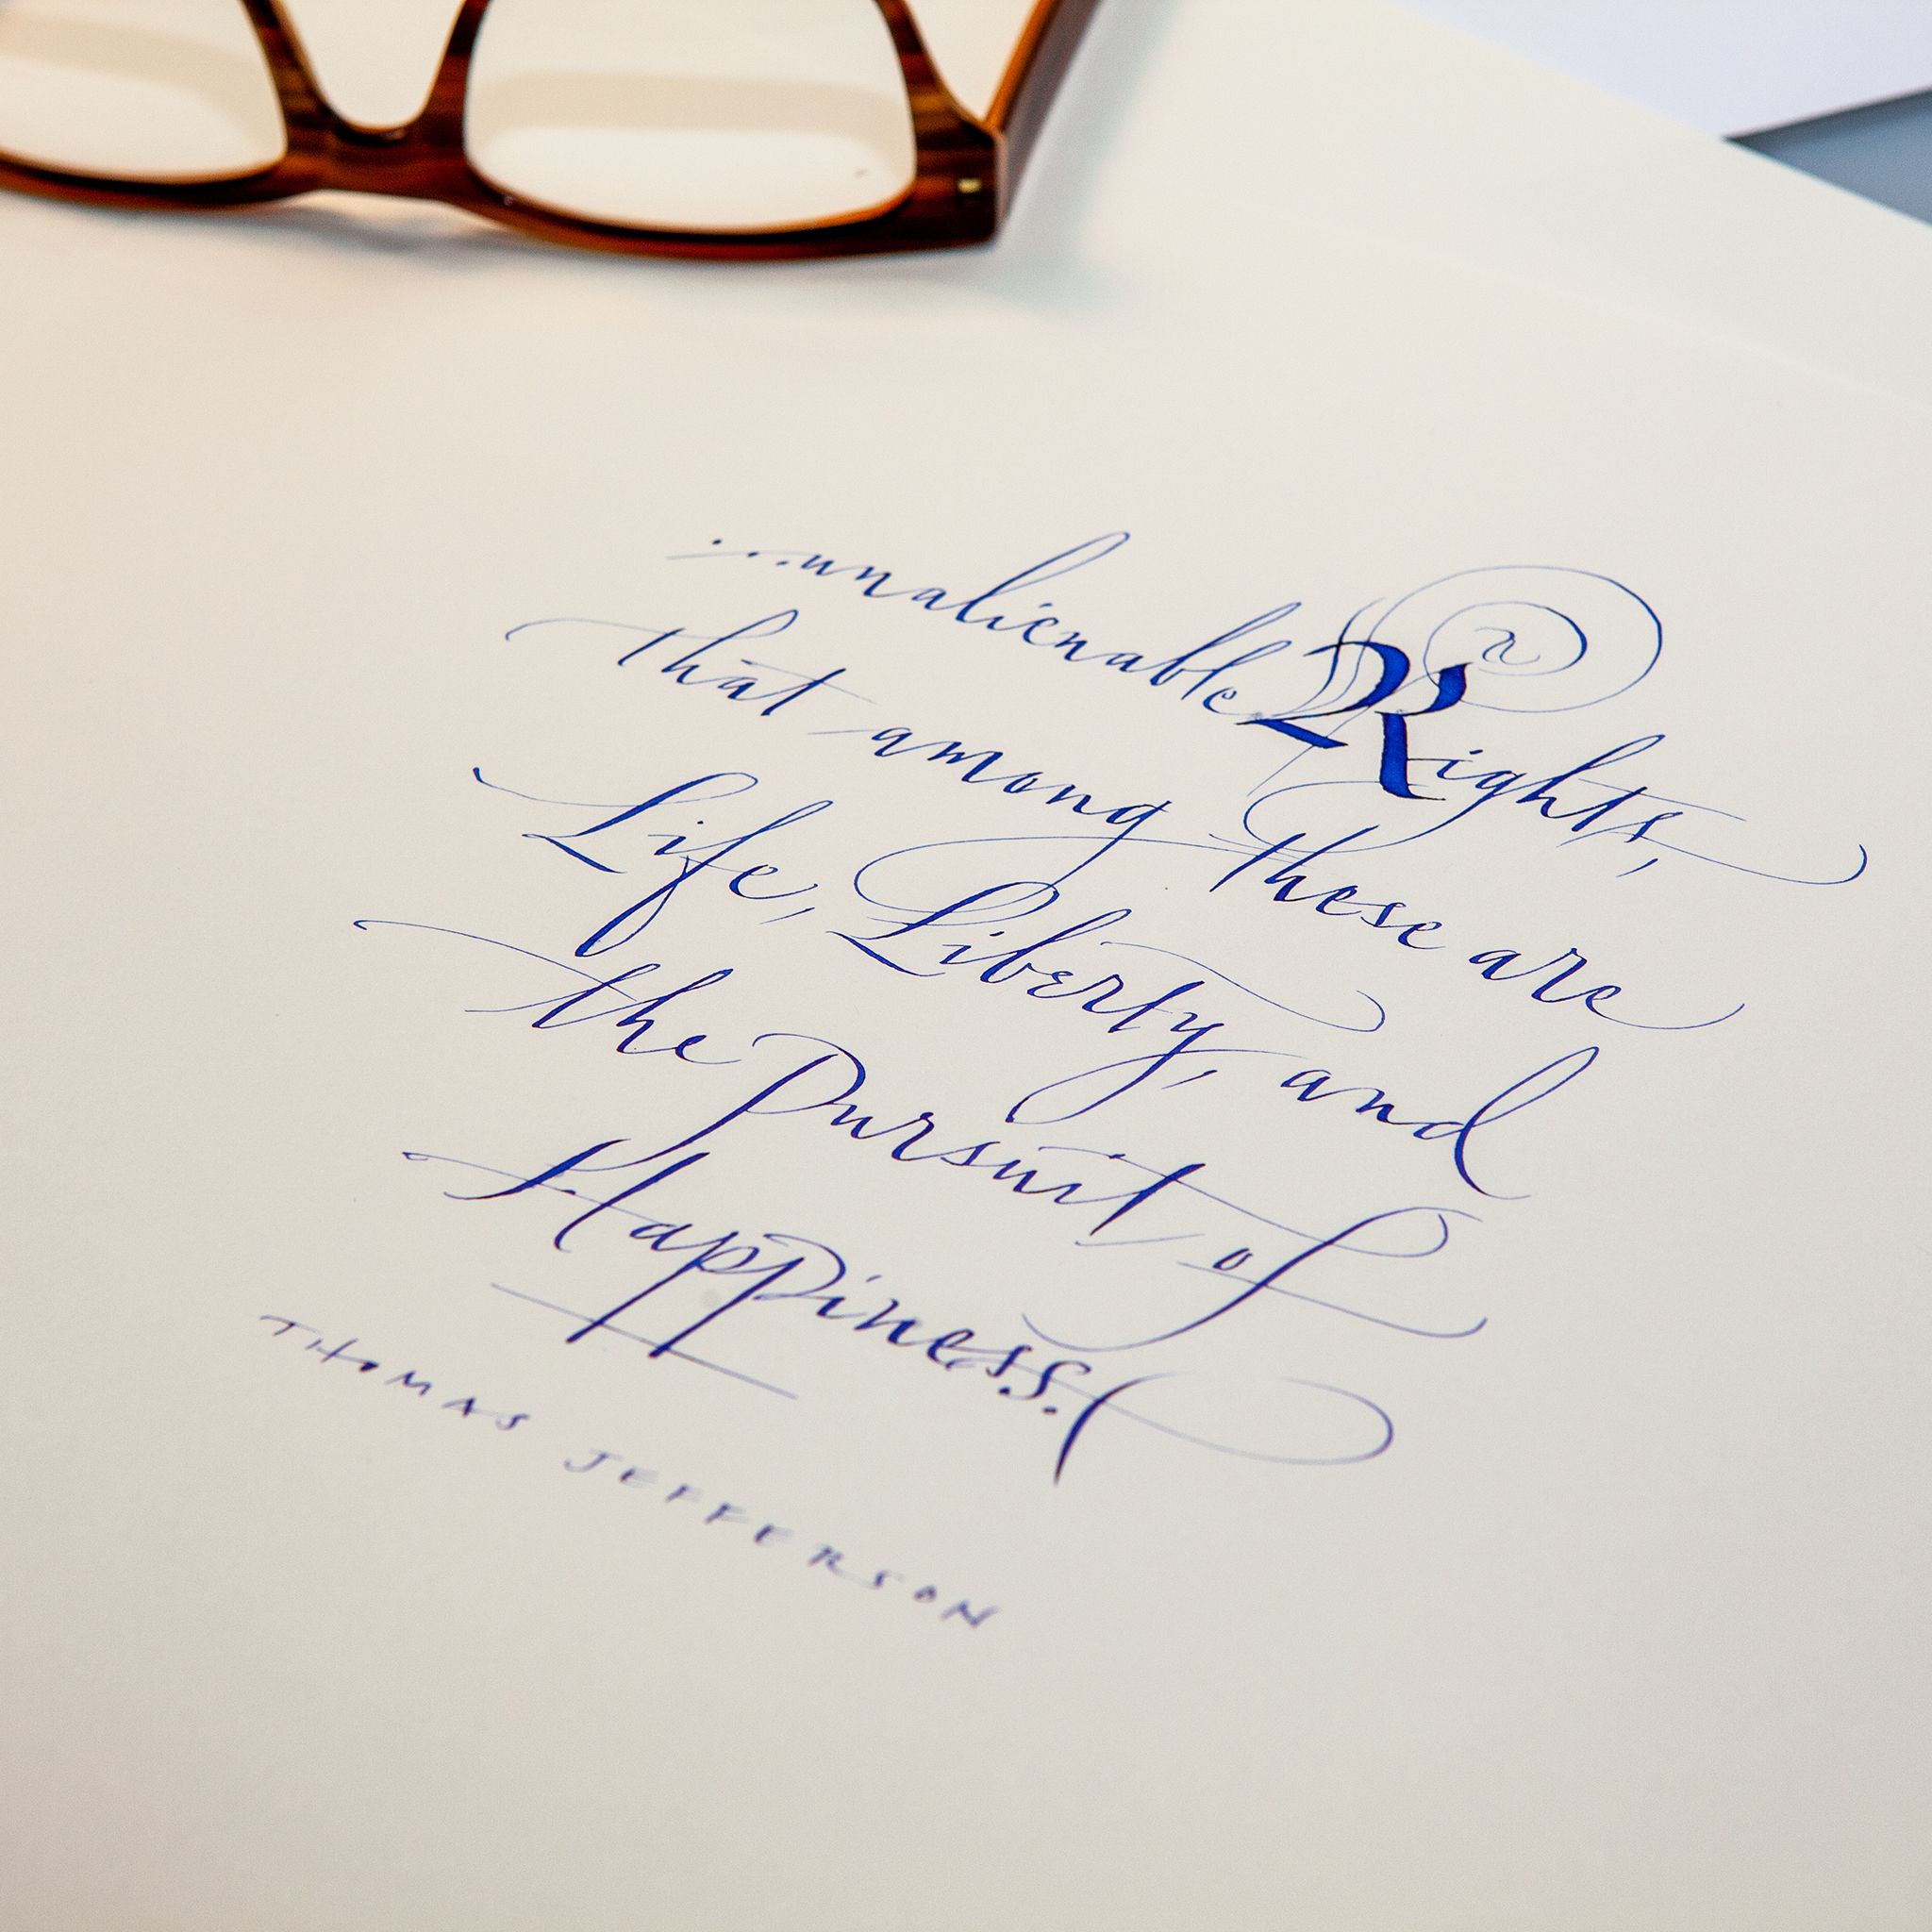 ...unalienable Rights,
that among these are
Life, Liberty, and
the Pursuit of
Happiness.
THOMAS JEFFERSON